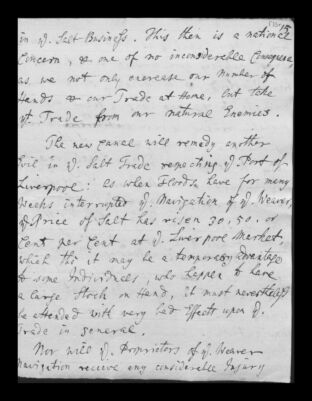 in yᵉ. Salt Business. This then is a national
Concern, & one of no inconsiderable Consequence,
as we not only encrease our Number of
Hands & our Trade at Home, but take
yᵗ. Trade from our natural Enemies.
The new Canal will remedy another
Evil in yᵉ. Salt Trade respecting yᵉ. Port of
Liverpool: as when Floods have for many
Weeks interrupted yᵉ. Navigation of yᵉ. Weaver,
yᵉ Price of Salt has risen 30, 50, or
Cent per Cent at yᵉ. Liverpool Market,
which tho' it may be a temporary advantage
to some Individuals, who happen to have
a large Stock on Hand, it must nevertheless
be attended with very bad Effects upon yᵉ.
Trade in general.
Nor will yᵉ. Proprietors of yᵉ. Weaver
Navigation receive any considerable Injury